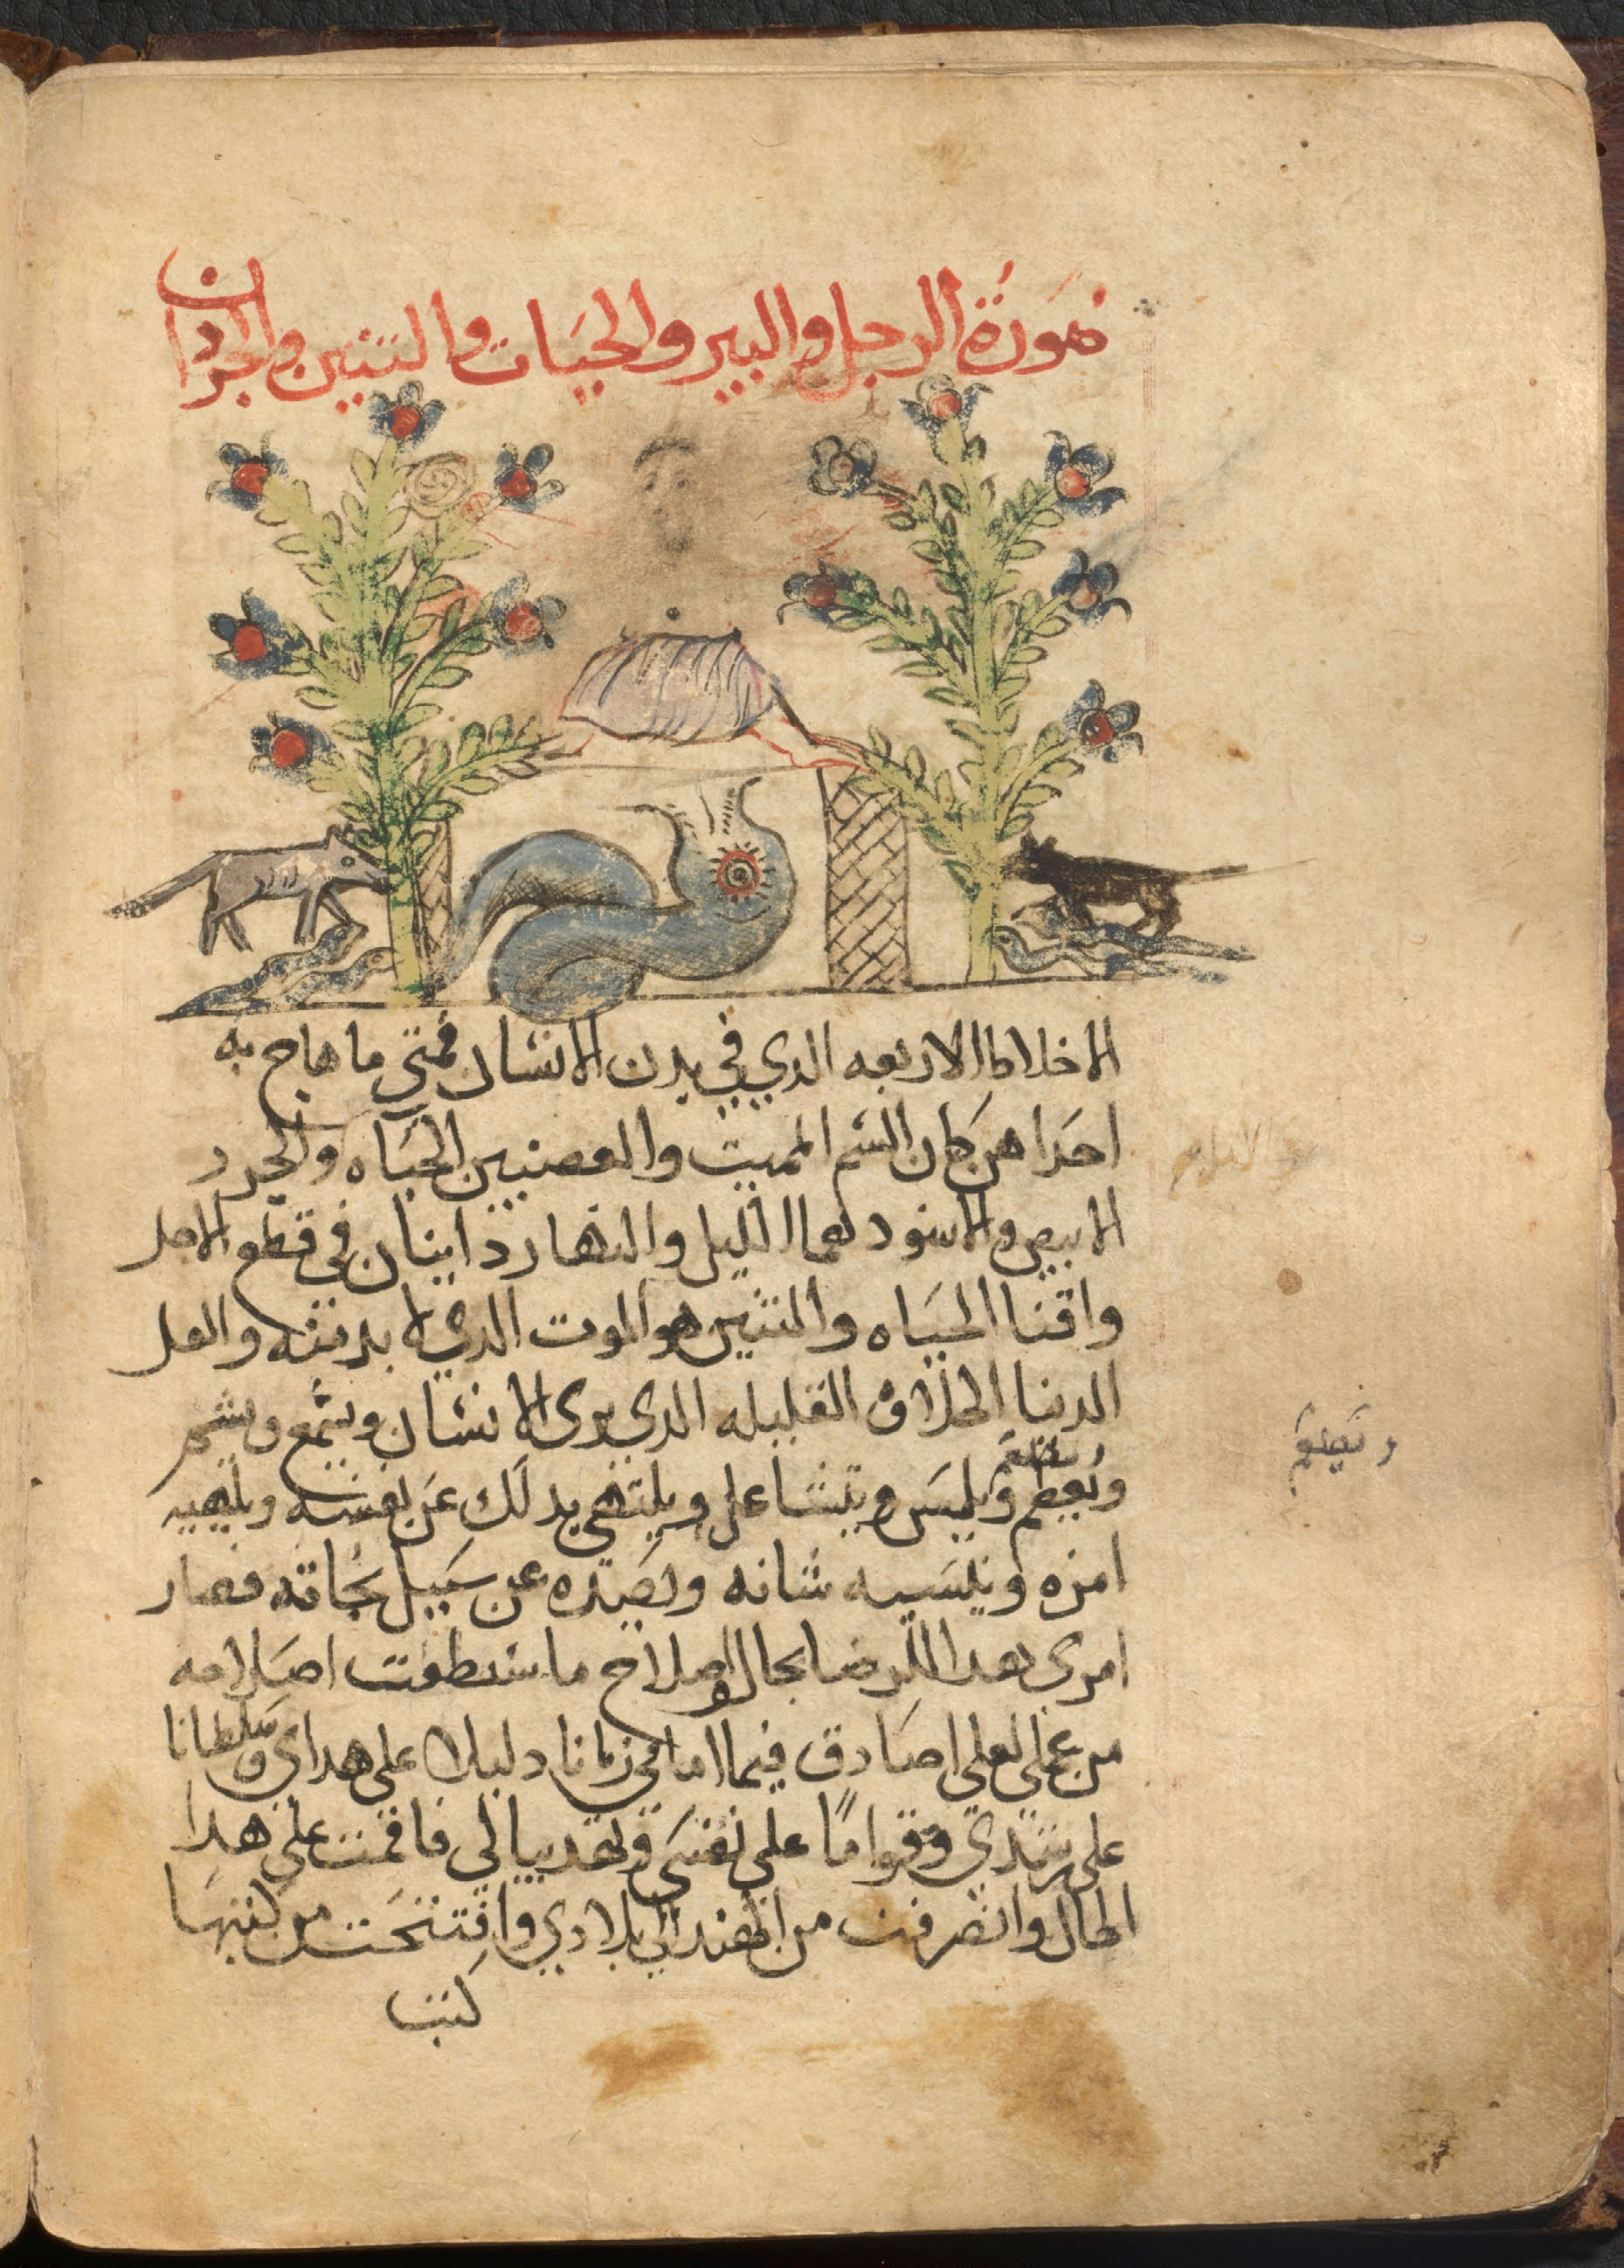 صورة الرجل والبير والحيات والتنين والجردان
الاخلاط الاربعه الدي في بدن الانسان فمتى ما هاج به
احدا هن كان السم المميت والغصنين الحياه والجرد
الابيض والاسود هما الليل والنهار دايبان في قطع الاجل
وافنا الحياه والتنين هو الموت الدي لا بد منه والعسل
الدينا الحلاوة القليله الدي يرى الانسان ويسمع ويشم
ويطعم ويلمس ويتشاغل ويلتهي بدلك عن نفسه ويلهيه
امره وينسيه شانه ويصده عن سبيل نجاته فصار
امري هدا الرضا بحال واصلاح ما ستطعت اصلاحه
من عملي لعلي اصادق فيما امامي زمانا دليلا على هداي وسلطانا
على رشدي وقواما على نفسي فاقمت على هدا
الحال وانصرفت من الهند الى بلادي وانتسخت من كتبها
كتب
ويطعم